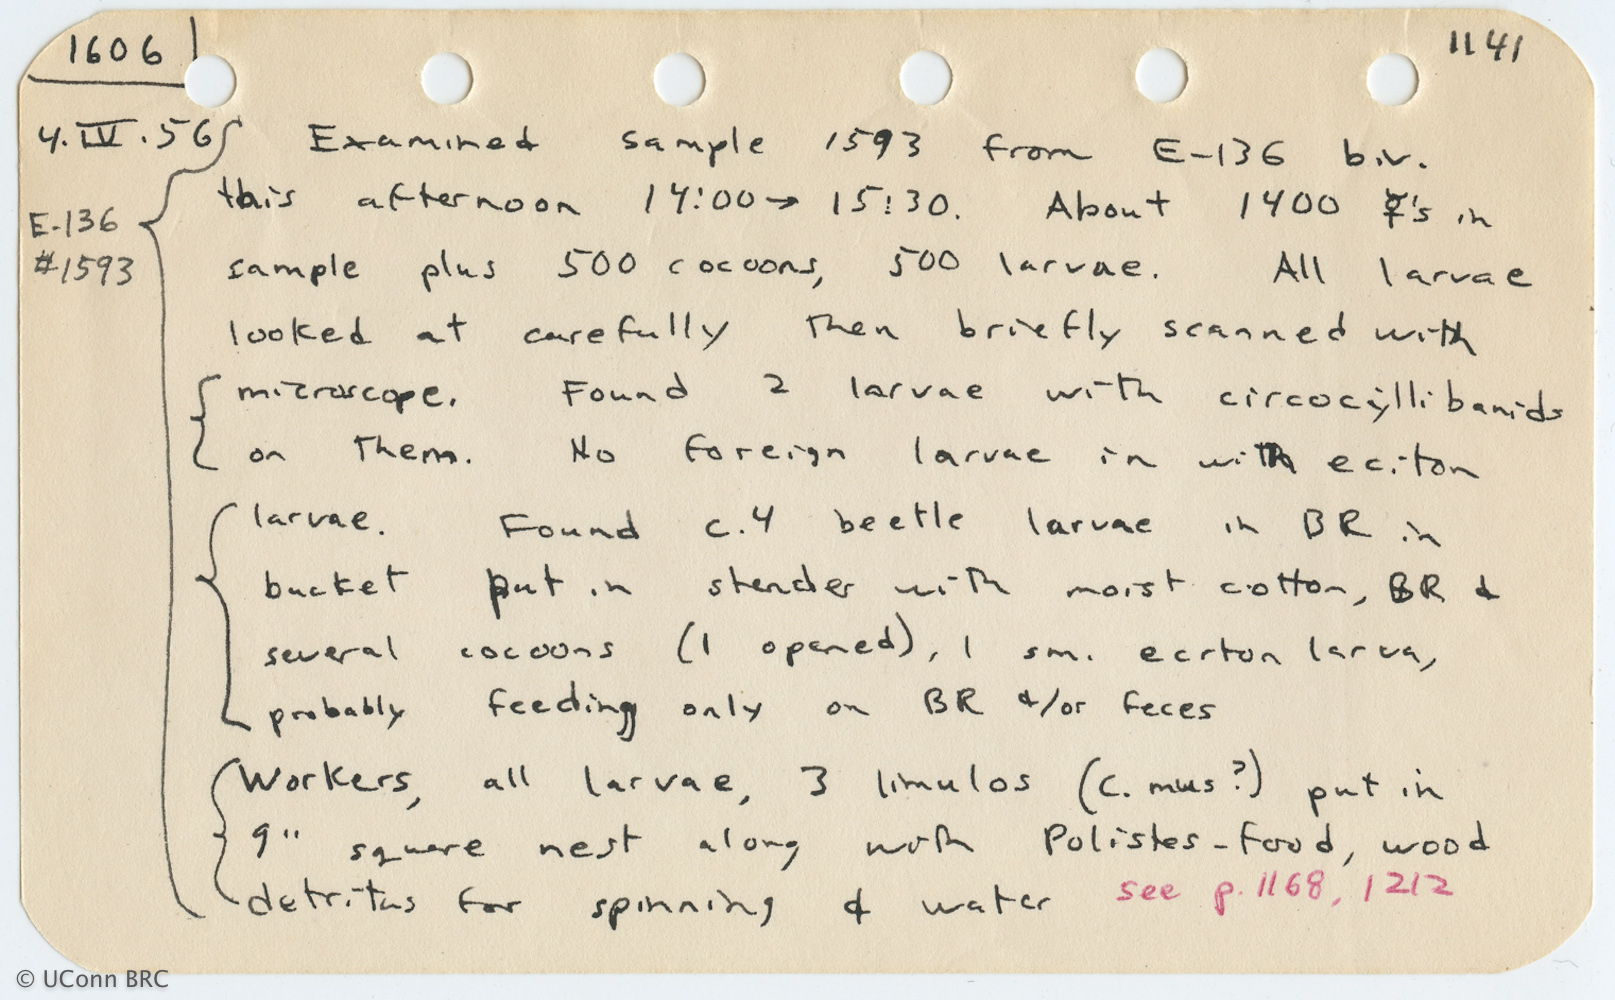 1606
1141
4.IV.56 Examined sample 1593 from E-136 biv.
this afternoon 14:00→ 15:30. About 1400 ☿'s in
E-136
#1593
sample plus 500 cocoons, 500 larvae. All larvae
looked at carefully then briefly scanned with
microscope. Found 2 larvae with circocyllibanids
on them. No foreign larvae in with eciton
larvae. Found c.4 beetle larvae in BR in
bucket put in stender with moist cotton, BR &
several cocoons (1 opened), 1 sm. eciton larva,
probably feeding only on BR &/or feces
Workers, all larvae, 3 limulos (C. mus?) put in
9" square nest along with Polistes-food, wood
detritus for spinning & water see p. 1168, 1212
© UConn BRC